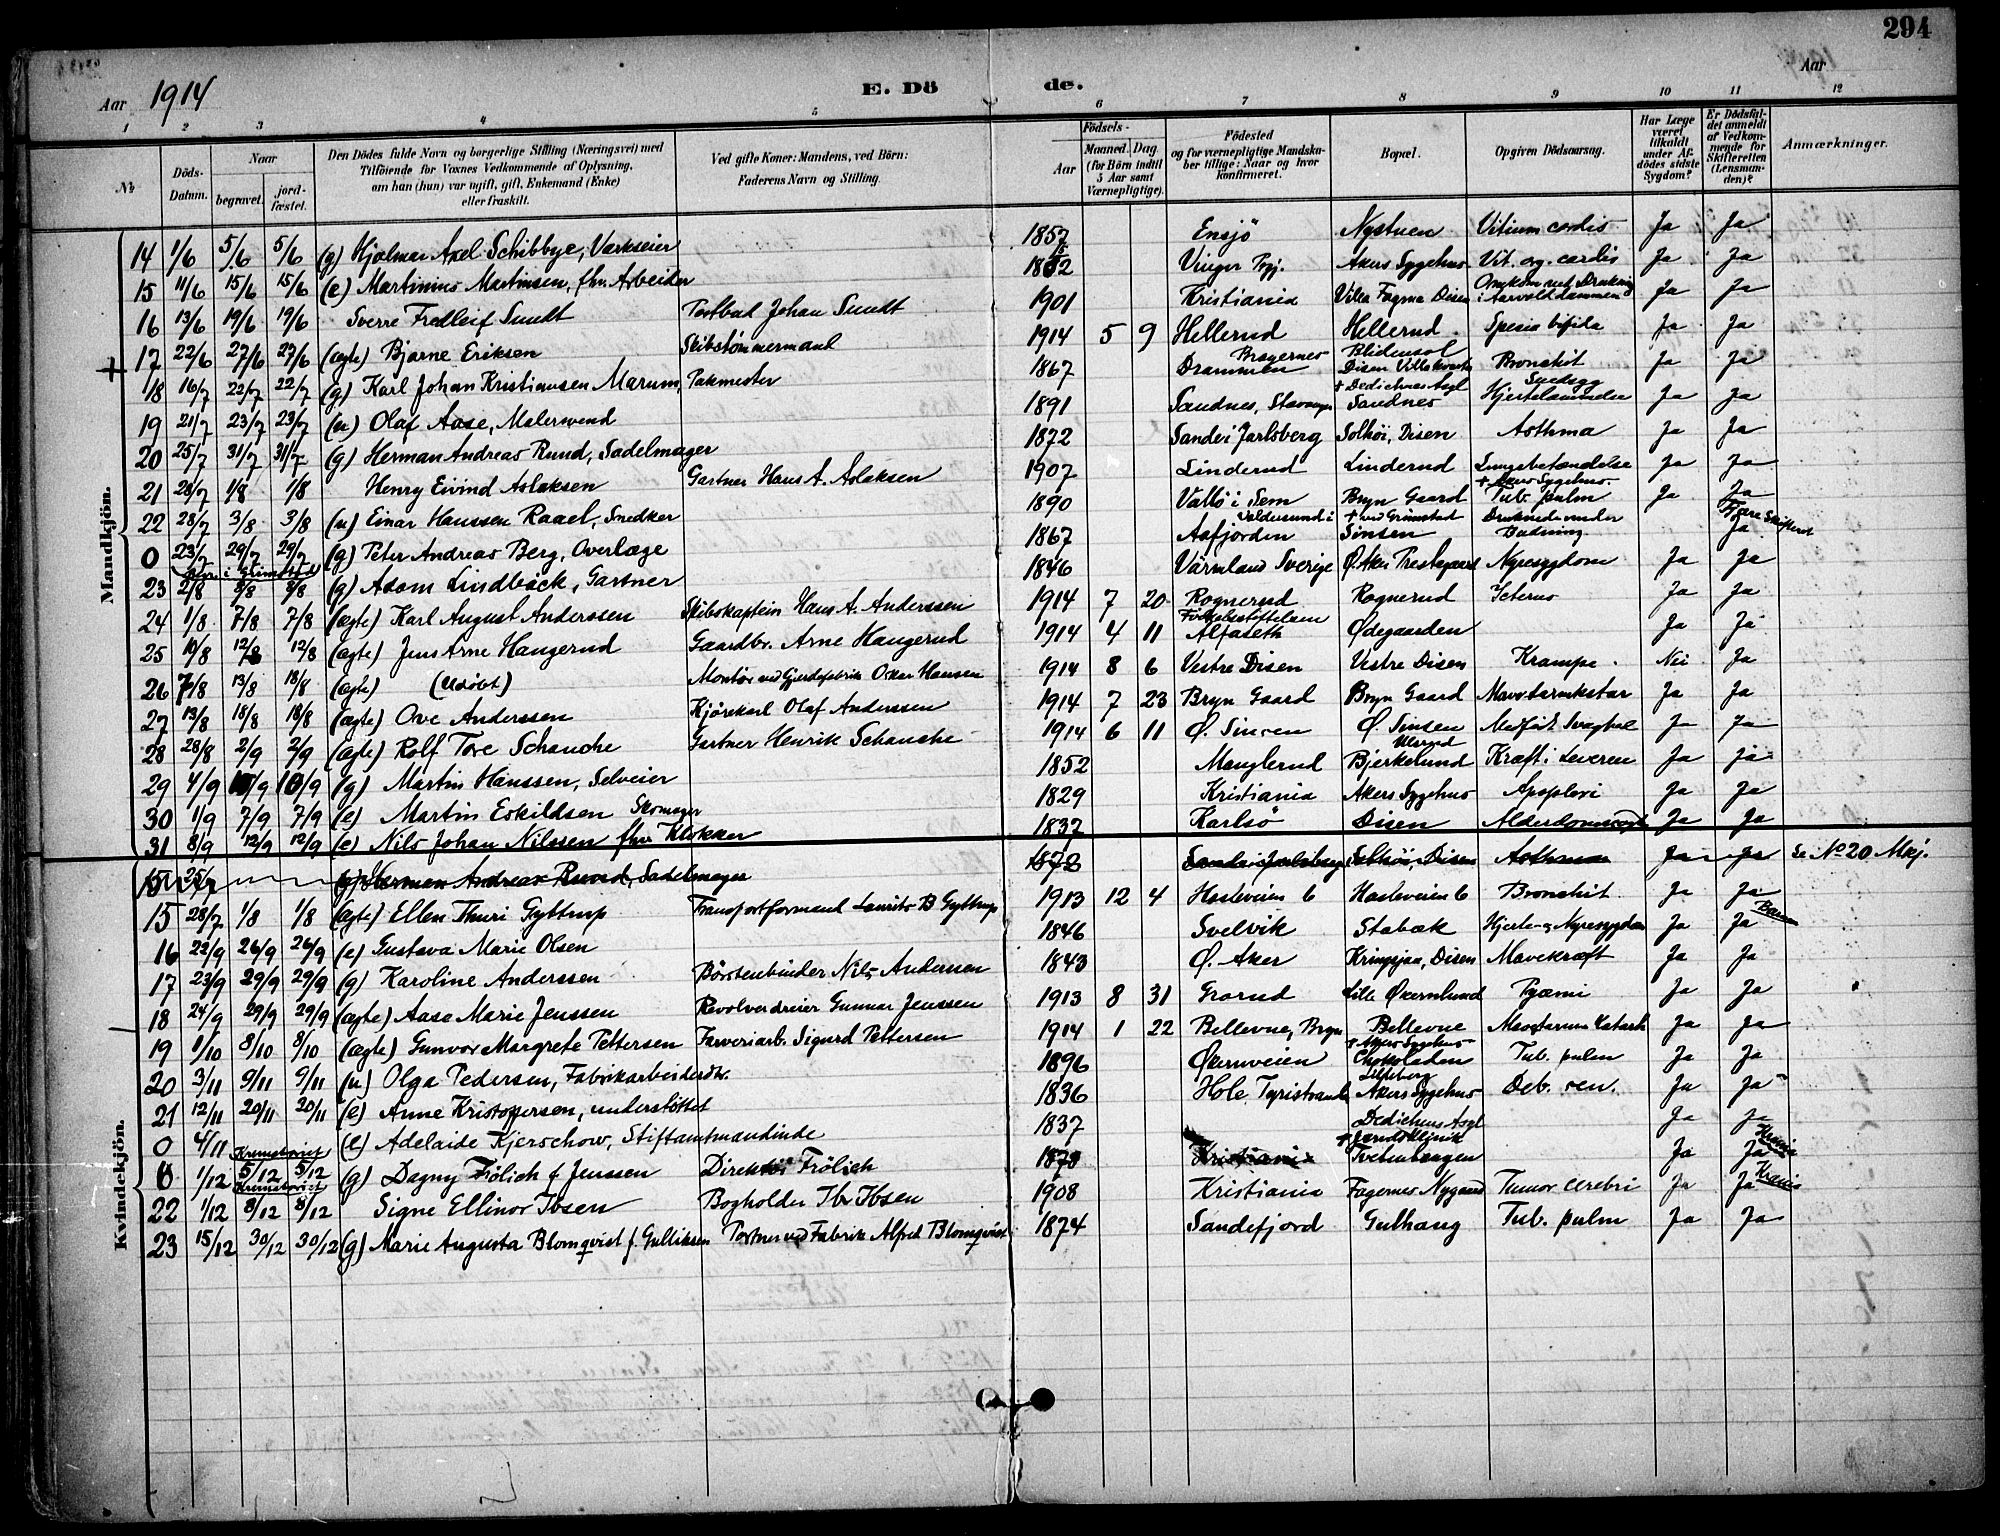 294
Aar 1914 E. Dö de. Aar
1 2 3 4 5 6 7 8 9 10 11 12
No Döds-Datum. Naar begravet. jord-fæstet. Den Dödes fulde Navn og borgerlige Stilling (Næringsvei) med Tilföiende for Voxnes Vedkommende af Oplysning, om han (hun) var ugift, gift, Enkemand (Enke) eller fraskilt. Ved gifte Koner: Mandens, ved Börn: Faderens Navn og Stilling. Födsels- Aar Maaned. Dag. (for Börn indtil 5 Aar samt Værnepligtige). Födested og for værnepligtige Mandskaber tillige: Naar og hvor konfirmeret. Bopæl. Opgiven Dödsaarsag. Har Læge været tilkaldt under Afdödes sidste Sygdom? Er Dödsfaldet anmeldt af Vedkommende for Skifteretten (Lensmanden)? Anmærkninger.
Mandkjön.
14 1/6 5/6 5/6 (g) Hjalmar Axel Schibbye, Værkseier 1857 Ensjö Nystuen Vitium cordis Ja Ja
15 11/6 15/6 15/6 (e) Martinius Martinsen, fhv. Arbeider Vinger Akers Sygehus Vit. og. cordis Ja Ja
16 13/6 19/6 19/6 Sverre Fredleif Sundt Postbud Johan Sundt 1901 Kristiania Villa Fagmo Disen Omkom ved Drukning i Aarvolddammen Ja Ja
17 22/6 27/6 27/6 (ægte) Bjarne Eriksen Skibstømmermand 1914 5 9 Hellerud Hellerud Spesia bifida Ja Ja
18 16/7 22/7 22/7 (g) Karl Johan Kristiansen Marum, Pakmester 1867 Bragernes Drammen Disen Villakvarter Bronchit Ja Ja
19 21/7 23/7 23/7 (u) Olaf Aase, Malersvend 1891 Sandnes, Stavanger + Dedichens Asyl Sandnes Hjertelammelse Ja Ja
20 25/7 31/7 31/7 (g) Herman Andreas Rund, Sadelmager 1872 Sande i Jarlsberg Solkøi, Disen Asthma Ja Ja
21 28/7 1/8 1/8 Henry Eivind Aslaksen Gartner Hans A. Aslaksen 1907 Linderud Linderud Lungebetændelse Ja Ja
22 28/7 3/8 3/8 (u) Einar Hanssen Raael, Snedker 1890 Vallö i Sem Bryn Gaard + Akers Sygehus Tub. pulm Ja Ja
0 23/7 29/7 29/7 (g) Peter Andreas Berg, Overlæge 1867 Valdersund i Aafjorden + ved Grimstad Sinsen Druknede under Badning Ja
23 2/8 8/8 8/8 (g) Adam Lindbäck, Gartner 1846 Värmland Sverige Ø. Aker Prestegaard Nyresygdom Ja Ja
24 1/8 7/8 7/8 (ægte) Karl August Anderssen Skibskaptein Hans A. Anderssen 1914 7 20 Rognerud Rognerud Icterus Ja Ja
25 10/8 12/8 12/8 (ægte) Jens Arne Haugerud Gaardbr. Arne Haugerud 1914 4 11 Födselsstiftelsen Alfaseth Ødegaarden Ja Ja
26 7/8 13/8 18/8 (ægte) (Udöbt) Montör ved Gjerdefabrik Oskar Hansen 1914 8 6 Vestre Disen Vestre Disen Krampe. Nei Ja
27 13/8 18/8 18/8 (ægte) Ove Anderssen Kjörekarl Olaf Anderssen 1914 7 23 Bryn Gaard Bryn Gaard Mavetarmkatar Ja Ja
28 28/8 2/9 2/9 (ægte) Rolf Tore Schanche Gartner Henrik Schanche 1914 6 11 Ø. Sinsen Ø. Sinsen Medfödt Svaghed Ja Ja
29 4/9 10/9 10/9 (g) Martin Hanssen, Selveier 1852 Manglerud Ulsrud Bjerkelund Kræft i Leveren Ja ja
30 1/9 7/9 7/9 (e) Martin Eskildsen Skomager 1829 Kristiania Akers Sygehus Apoplexi Ja Ja
31 8/9 12/9 12/9 (e) Nils Johan Nilssen fhv. Klokker 1837 Karlsö Disen Ja Ja
Kvindekjön.
15 25/7 (g) Herman Andreas Rund, Sadelmager 1872 Sande i Jarlsberg Solkøi, Disen Asthma Ja Ja Se No 20 Mkj.
15 28/7 1/8 1/8 (ægte) Ellen Thuri Gyttrup Transportformand Laurits B Gyttrup 1913 12 4 Hasleveien 6 Hasleveien 6 Bronchit Ja Ja
16 22/9 26/9 26/9 (e) Gustava Marie Olsen 1846 Svelvik Stabæk Hjerte- og Nyresygdom Ja Ja Bærum
17 23/9 29/9 29/9 (g) Karoline Anderssen Børstenbinder Nils Andersen 1843 Ø. Aker Kringsjaa, Disen Mavekræft Ja Ja
18 24/9 29/9 29/9 (ægte) Aase Marie Jenssen Revolverdreier Gunnar Jenssen 1913 8 31 Grorud Lille Økernlund Pyæmi Ja Ja
19 1/10 8/10 8/10 (ægte) Gunvor Margrete Pettersen Farveriarb. Sigurd Pettersen 1914 1 22 Bellevue, Bryn Bellevue Ja Ja
20 3/11 9/11 9/11 (u) Olga Pedersen, Fabrikarbeiderske. 1896 Økernveien + Akers Sygehus Chokoladen Tub. pulm Ja Ja
21 12/11 20/11 20/11 (e) Anne Kristoffersen, understöttet 1836 Hole Tyristrand Lilleberg Akers Sygehus Deb. sen. Ja Ja
0 4/11 Krematoriet (e) Adelaide Kjerschow, Stiftamtmandinde 1837 Dedichens Asyl Ja Ja
0 1/12 5/12 5/12 (g) Dagny Frölich f. Jenssen Direktör Frölich 1878 Kristiania Tvetenhaugen Ja Ja
22 1/12 Krematoriet 8/12 8/12 Signe Ellinor Ibsen Bogholder Ibsen 1908 Kristiania Fagernes Nygaard Tumor cerebri Ja Ja Krania
23 15/12 30/12 30/12 (g) Marie Augusta Blomqvist f. Gulliksen Portner ved Fabrik Alfred Blomqvist 1874 Sandefjord Gulhaug Tub. pulm Ja Ja